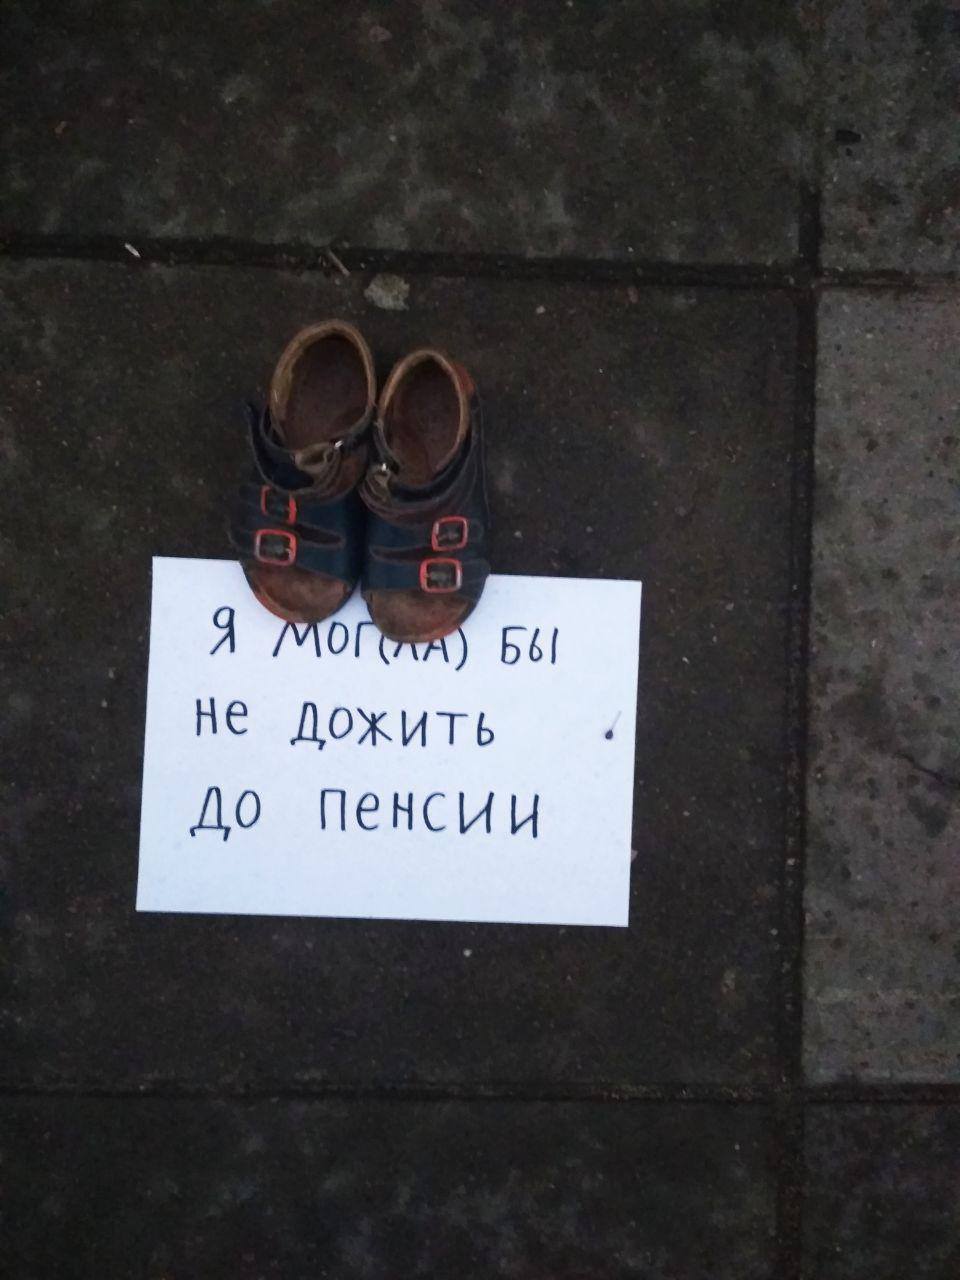 Я МОГ(ЛА) БЫ
не дожить
до пенсии